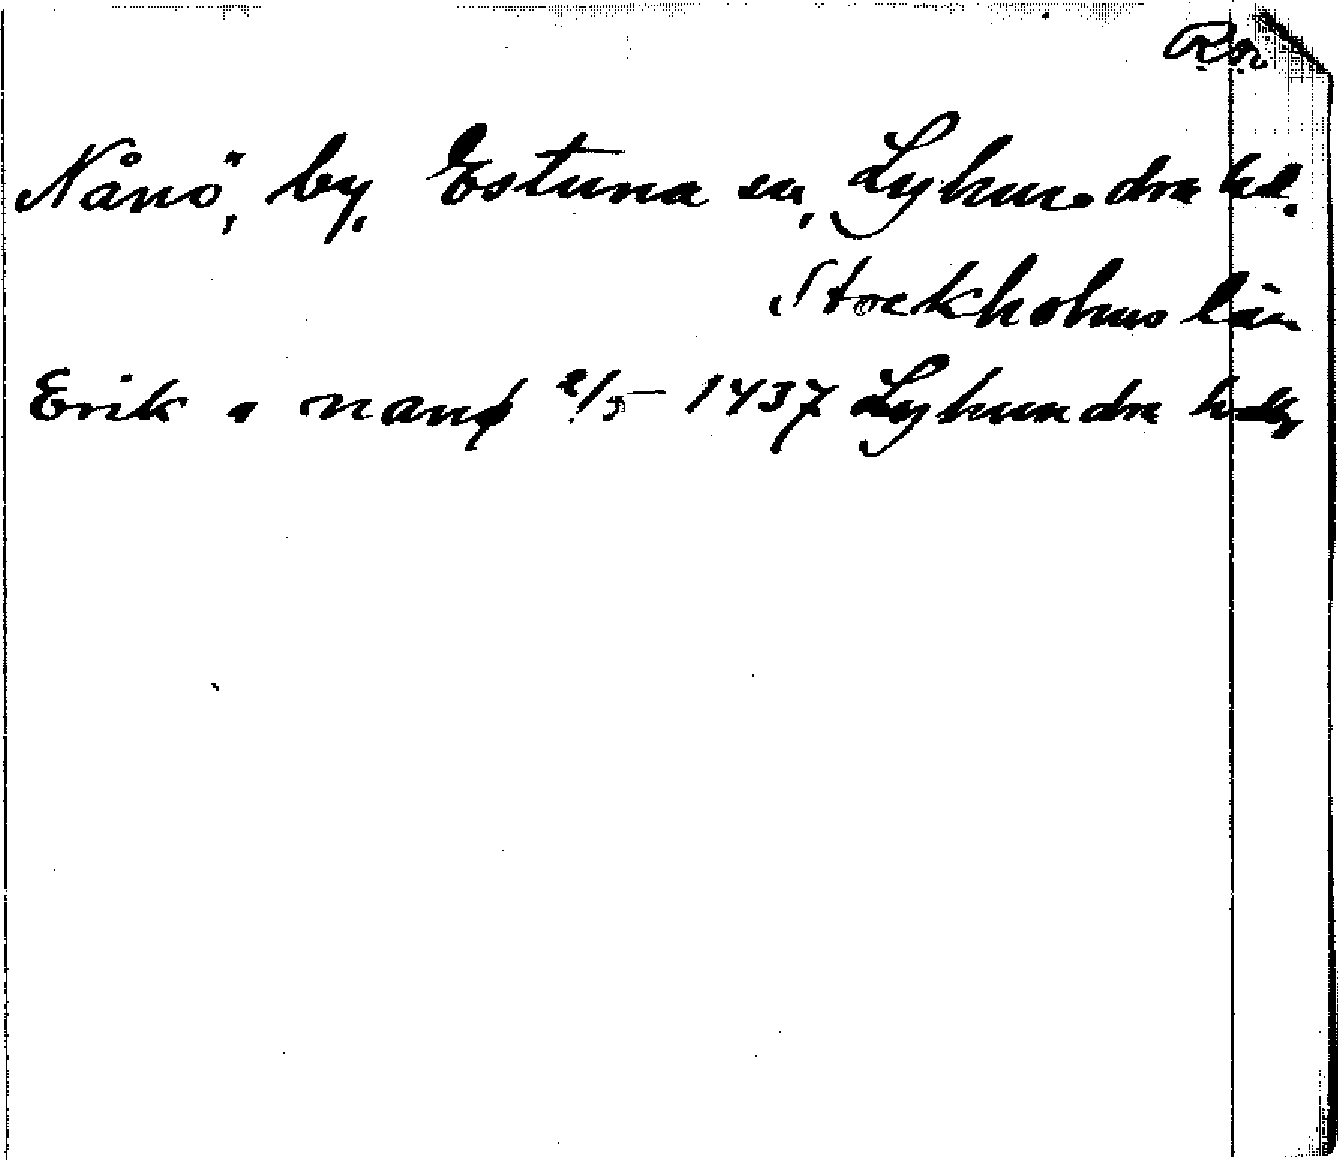 Nånö, by, Estuna sn, Lyhundra hd.
Stockholms län
Erik a nanø 2/5 1437 Lyhundra